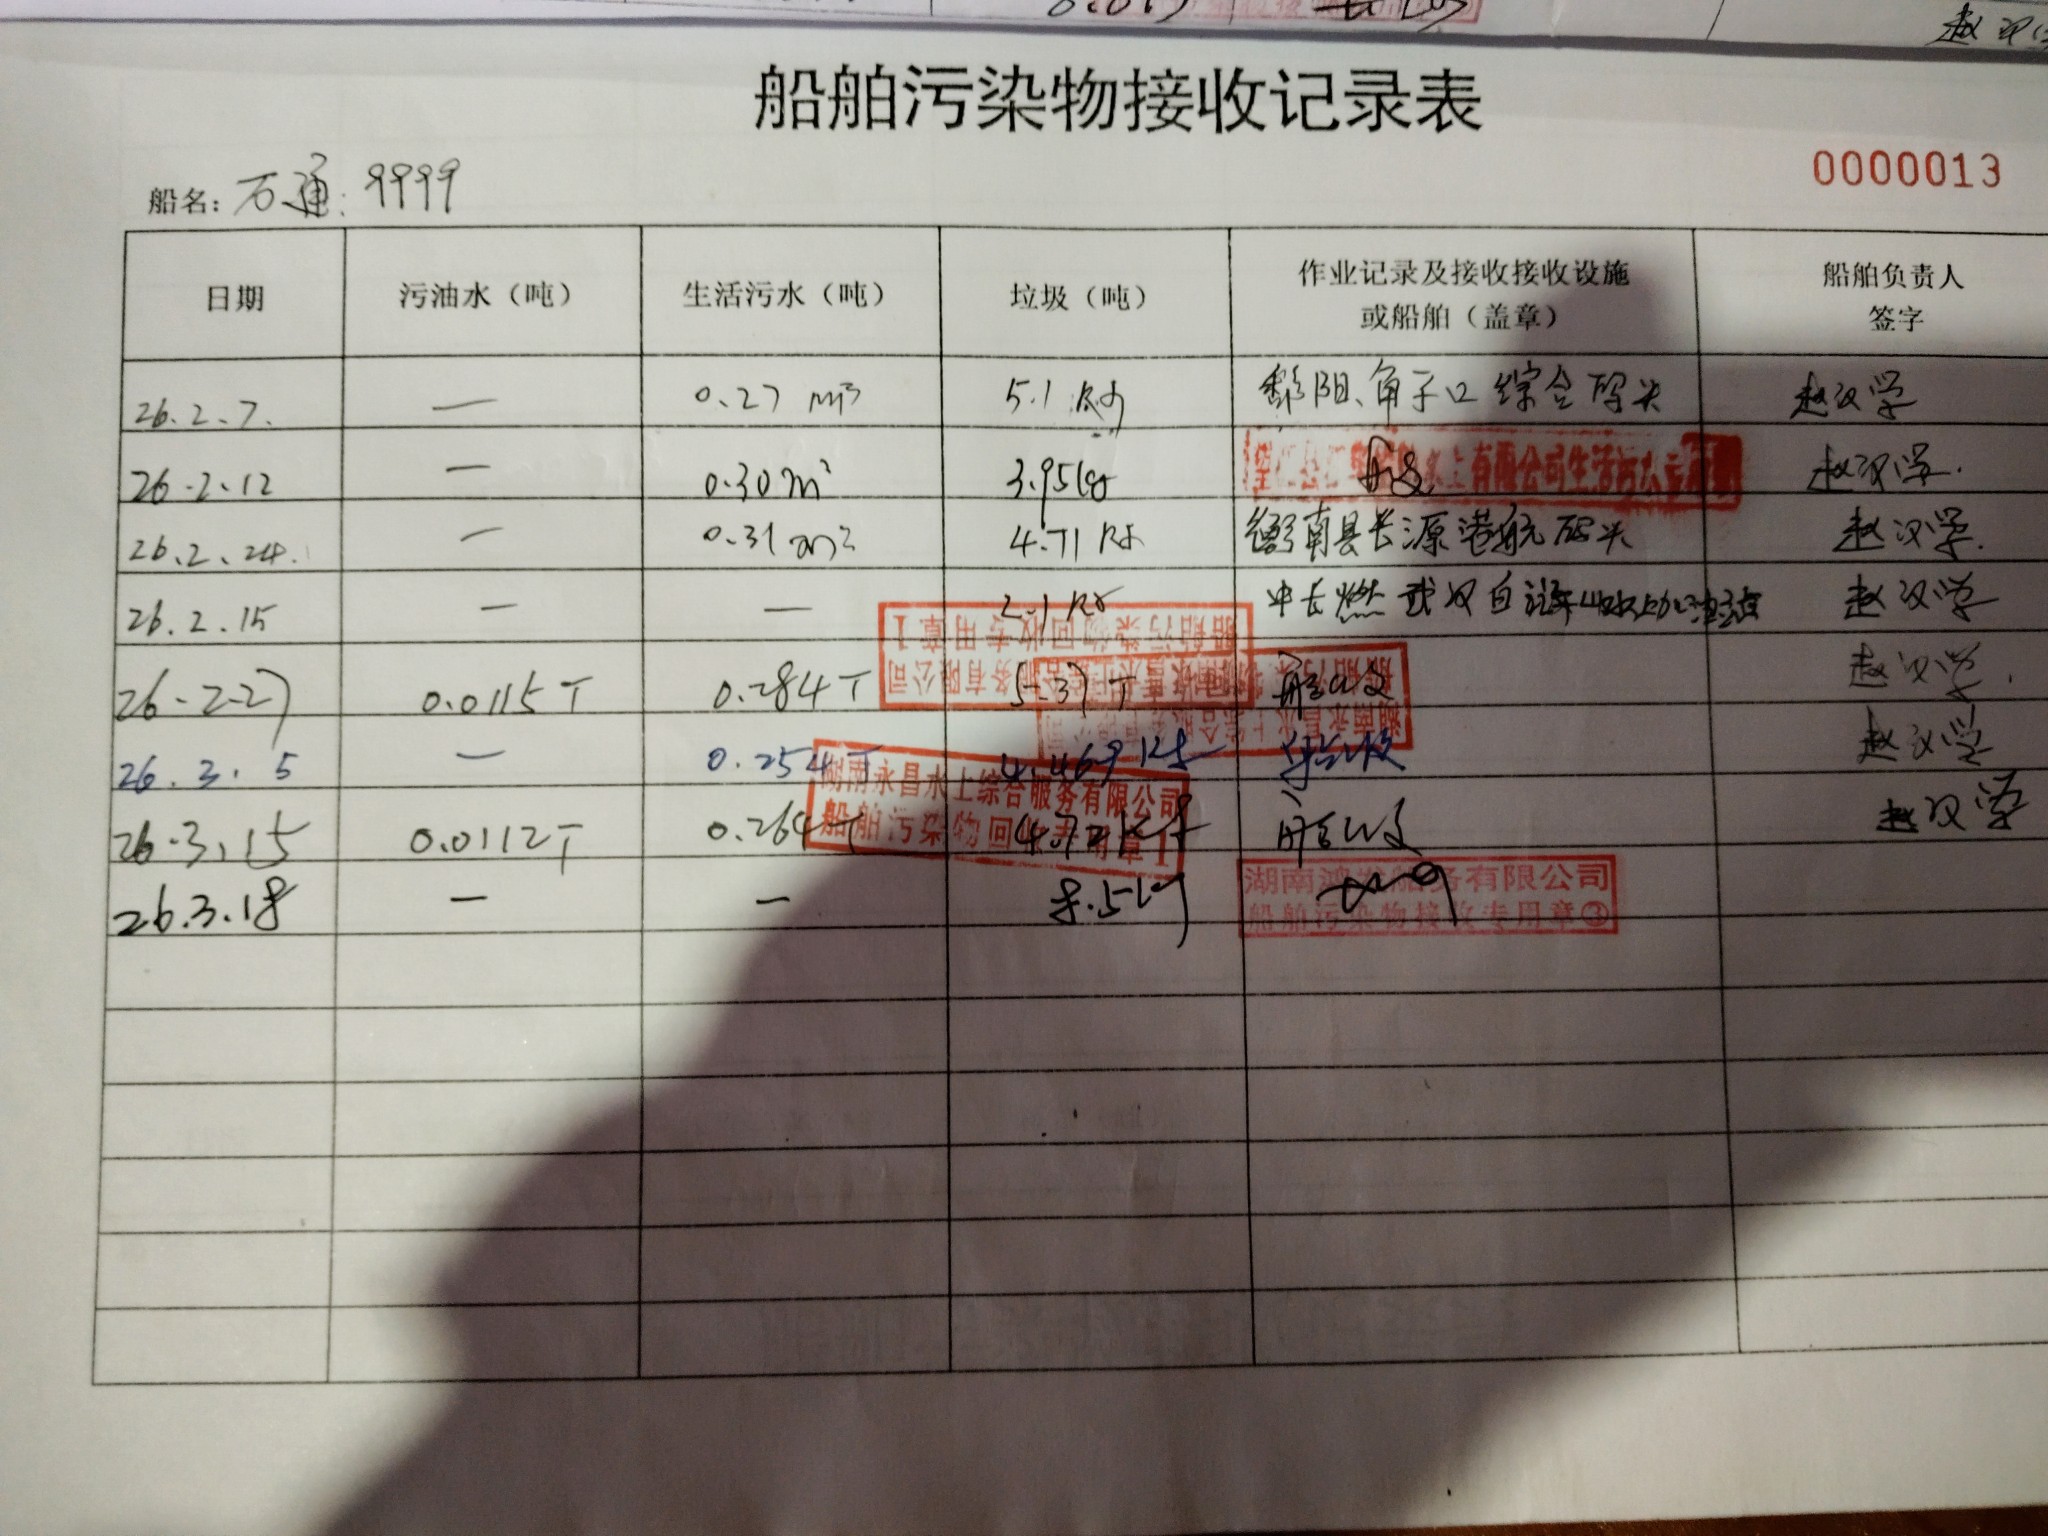 船舶污染物接收记录表
0000013
船名：石通：9999
日期 污油水（吨） 生活污水（吨） 垃圾（吨） 作业记录及接收接收设施 船舶负责人
或船舶（盖章） 签字
26.2.7. — 0.27 m³ 5.1 kg 鄱阳、角子口综合码头 赵汉学
26.2.12 — 0.30 m³ 3.95kg 水上有限公司生活污水 赵汉学.
26.2.24. — 0.31 m³ 4.71 kg 衡南县长源港航码头 赵汉学.
26.2.15 — — 2.1 kg 中长燃武汉 赵汉学
26.2.27 0.0115T 0.284T 5.37 T 赵汉学.
26.3.5 — 0.254T 4.469 kg 赵汉学
湖南永昌水上综合服务有限公司
船舶污染物回收专用章1
26.3.15 0.0112T 0.264T 赵汉学
26.3.18 — — 8.5kg
湖南鸿发船务有限公司
船舶污染物接收专用章③